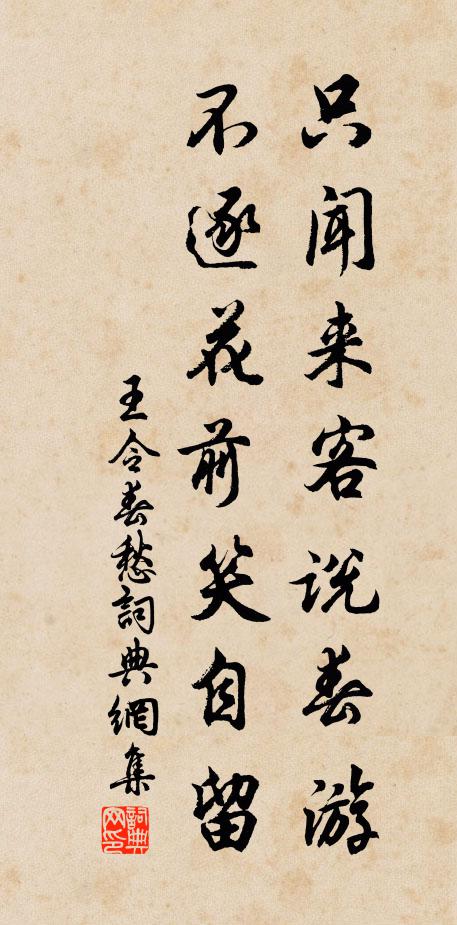 只闻来客说春游
不逐花前笑自留
王令春愁詞典網集
詞典網印